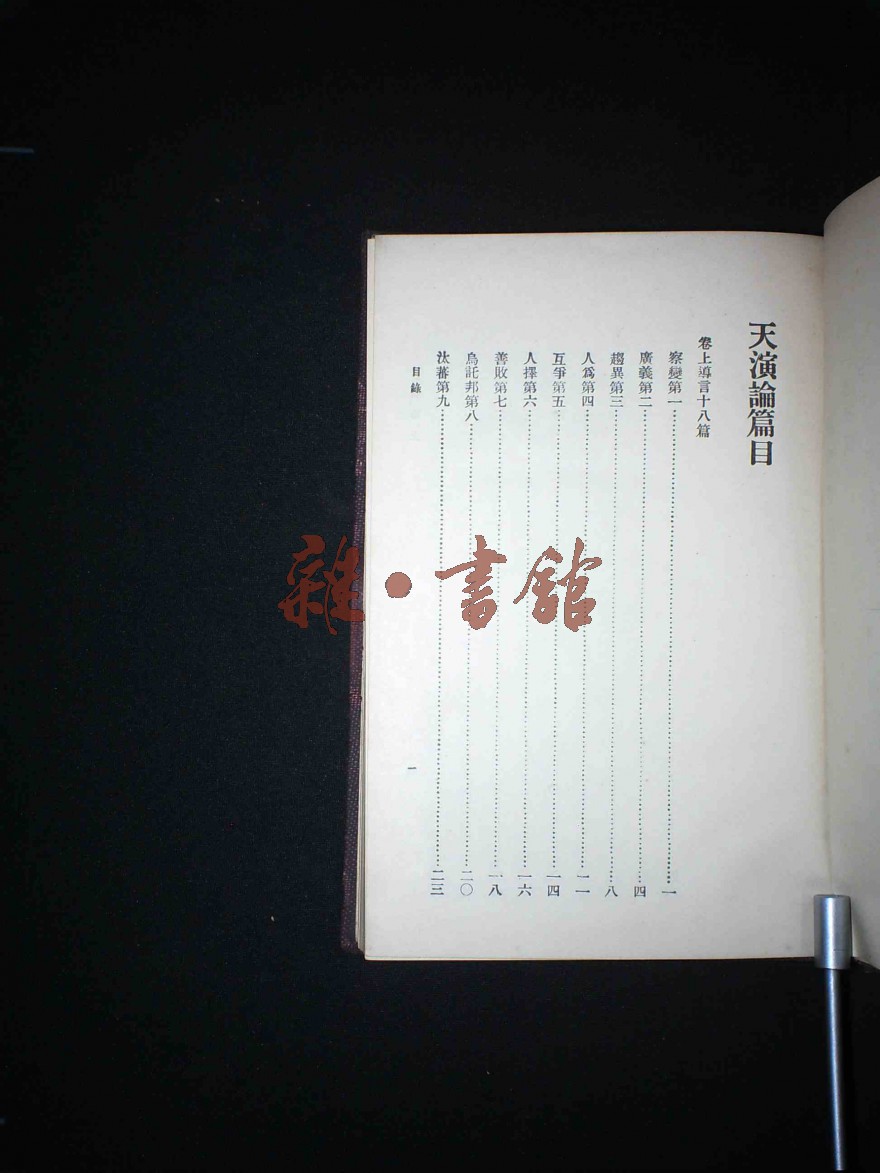 天演論篇目
卷上導言十八篇
察變第一……一
廣義第二……四
趨異第三……八
人爲第四……一一
互爭第五……一四
人擇第六……一六
善敗第七……一八
烏託邦第八……二〇
汰蕃第九……二三
目錄
一
雜·書館